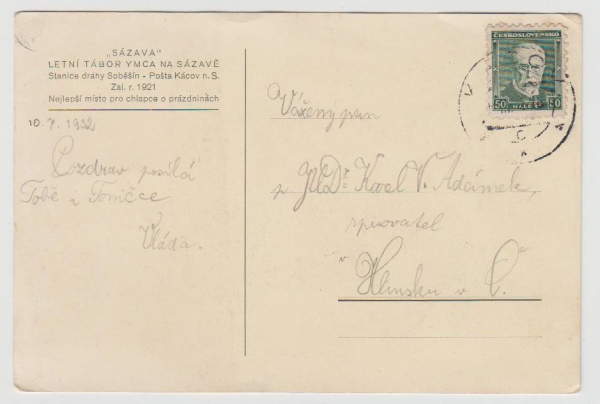 „SÁZAVA"
LETNÍ TÁBOR YMCA NA SÁZAVĚ
Stanice dráhy Soběšín - Pošta Kácov n. S.
Zal. r. 1921
Nejlepší místo pro chlapce o prázdninách
10. 7. 1932
Pozdrav posílá
Tobě a Toničce
Vláda.
ČESKOSLOVENSKO
50 HALÉŘŮ 50
Vážený pan
p. JUDr Karel V. Adámek,
spisovatel
v
Hlinsku v Č.